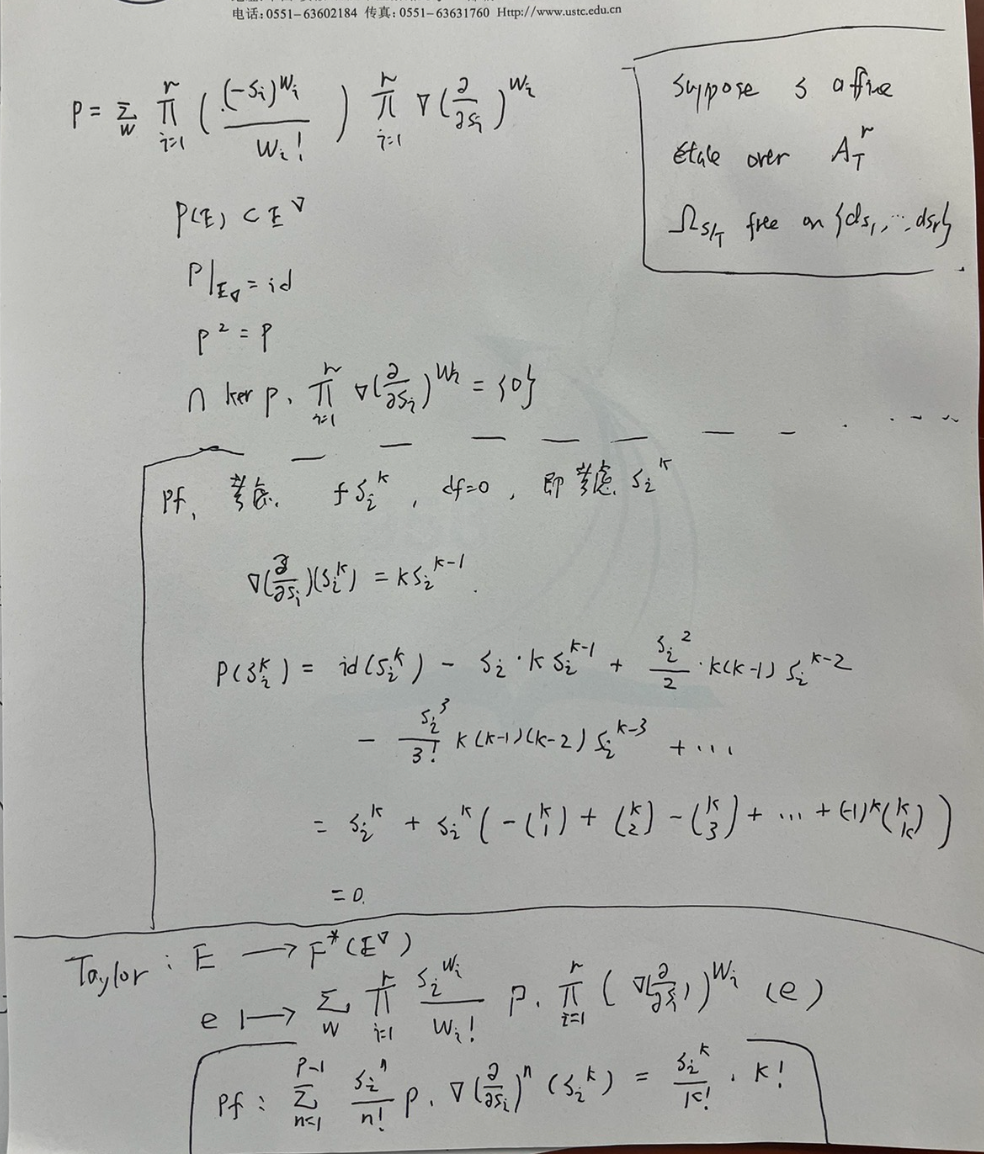 电话:0551-63602184 传真:0551-63631760 Http://www.ustc.edu.cn
P = Σ_W ∏_{i=1}^{r} ( (-S_i)^{W_i} / W_i! ) ∏_{i=1}^{r} ∇(∂/∂S_i)^{W_i}
Suppose S affine
étale over A_T^r
Ω_{S/T} free on {ds_1, ..., ds_r}
P(E) ⊂ E^∇
P|_{E^∇} = id
P² = P
∩ ker P · ∏_{i=1}^{r} ∇(∂/∂S_i)^{W_i} = {0}
Pf, 考虑. f S_i^k , df=0 , 即考虑. S_i^k
∇(∂/∂S_i)(S_i^k) = k S_i^{k-1}.
P(S_i^k) = id(S_i^k) - S_i · k S_i^{k-1} + S_i^2/2 · k(k-1) S_i^{k-2}
- S_i^3/3! k(k-1)(k-2) S_i^{k-3} + ...
= S_i^k + S_i^k ( -(k 1) + (k 2) - (k 3) + ... + (-1)^k (k k) )
= 0.
Taylor : E ⟶ F*(E^∇)
e ⟼ Σ_W ∏_{i=1}^{r} S_i^{W_i} / W_i! P · ∏_{i=1}^{r} ( ∇(∂/∂S_i) )^{W_i} (e)
Pf : Σ_{n=1}^{p-1} S_i^n / n! P · ∇(∂/∂S_i)^n (S_i^k) = S_i^k / k! · k!